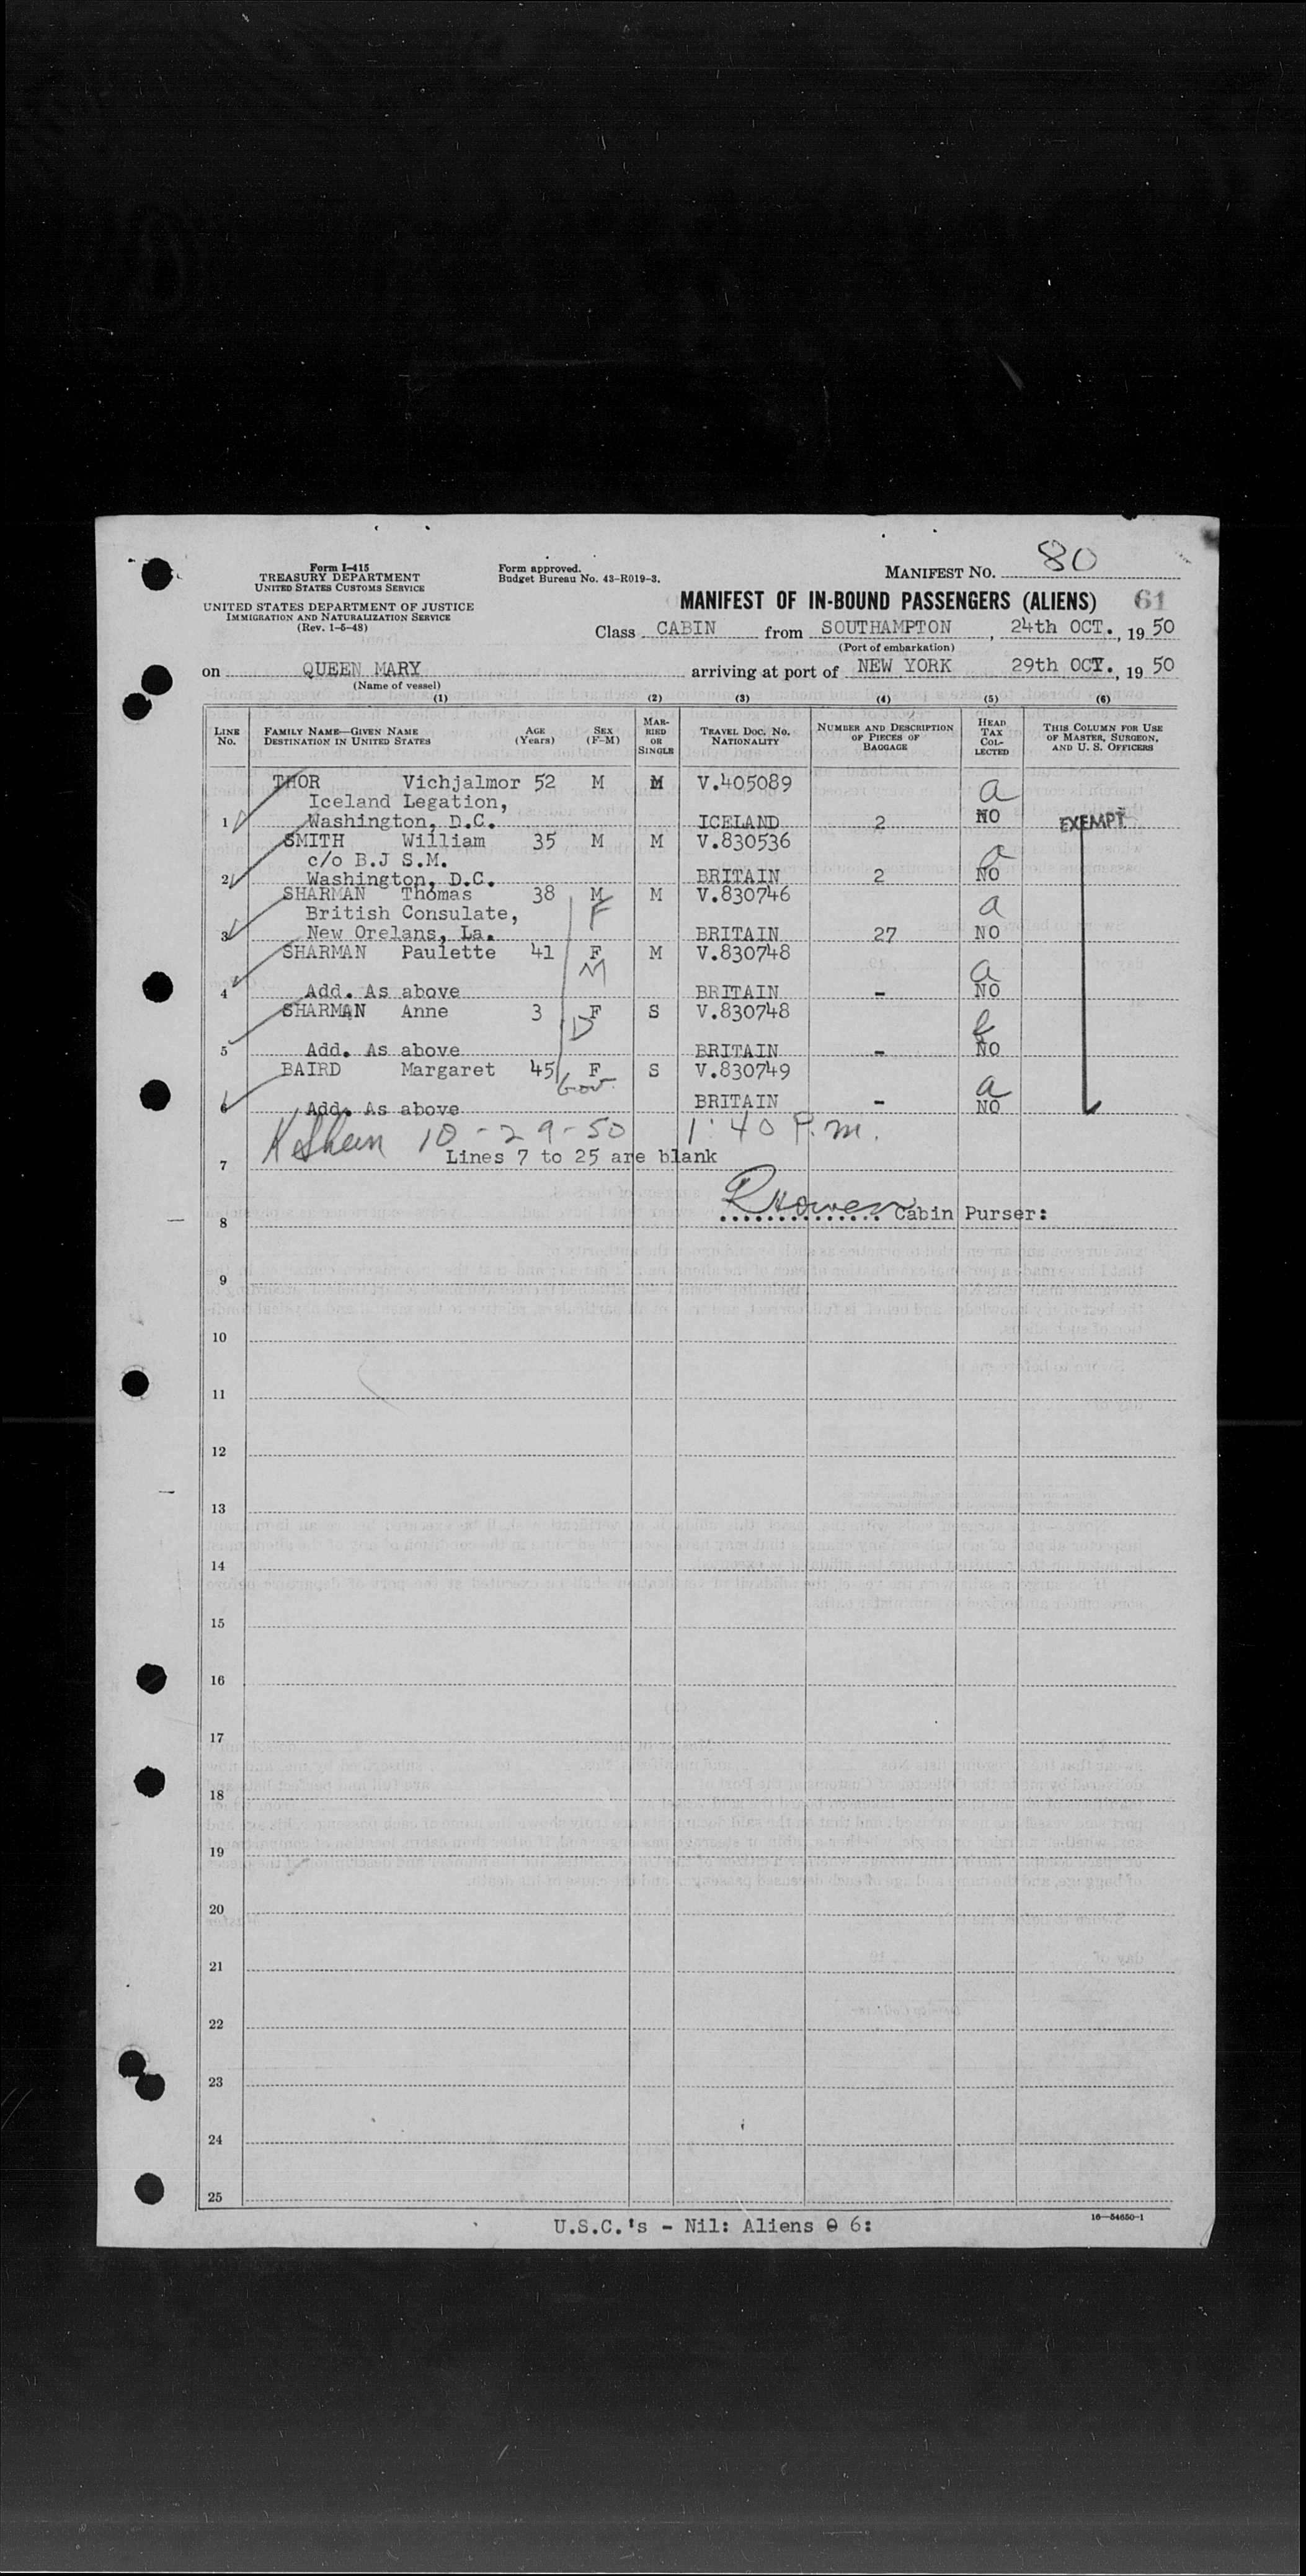 Form I-415
TREASURY DEPARTMENT
UNITED STATES CUSTOMS SERVICE
UNITED STATES DEPARTMENT OF JUSTICE
IMMIGRATION AND NATURALIZATION SERVICE
(Rev. 1-5-48)
Form approved.
Budget Bureau No. 43-R019-3.
MANIFEST NO. 80
MANIFEST OF IN-BOUND PASSENGERS (ALIENS) 61
Class CABIN from SOUTHAMPTON, 24th OCT., 19 50
(Port of embarkation)
on QUEEN MARY arriving at port of NEW YORK 29th OCT., 19 50
(Name of vessel)
(1) (2) (3) (4) (5) (6)
LINE No. FAMILY NAME—GIVEN NAME DESTINATION IN UNITED STATES AGE (Years) SEX (F-M) MARRIED OR SINGLE TRAVEL DOC. NO. NATIONALITY NUMBER AND DESCRIPTION OF PIECES OF BAGGAGE HEAD TAX COLLECTED THIS COLUMN FOR USE OF MASTER, SURGEON, AND U. S. OFFICERS
THOR Vichjalmor 52 M M V.405089 a
Iceland Legation,
1 Washington, D.C. ICELAND 2 NO EXEMPT
SMITH William 35 M M V.830536 a
c/o B.J S.M.
2 Washington, D.C. BRITAIN 2 NO
SHARMAN Thomas 38 M M V.830746 a
British Consulate, F
3 New Orelans, La. BRITAIN 27 NO
SHARMAN Paulette 41 F M V.830748 a
M
4 Add. As above BRITAIN - NO
SHARMAN Anne 3 F S V.830748
D
5 Add. As above BRITAIN - NO
BAIRD Margaret 45 F S V.830749 a
Gov.
6 Add. As above BRITAIN - NO
10-29-50 1:40 P.m.
7 Lines 7 to 25 are blank
8 Cabin Purser:
9
10
11
12
13
14
15
16
17
18
19
20
21
22
23
24
25
16—54650-1
U.S.C.'s - Nil: Aliens 6: